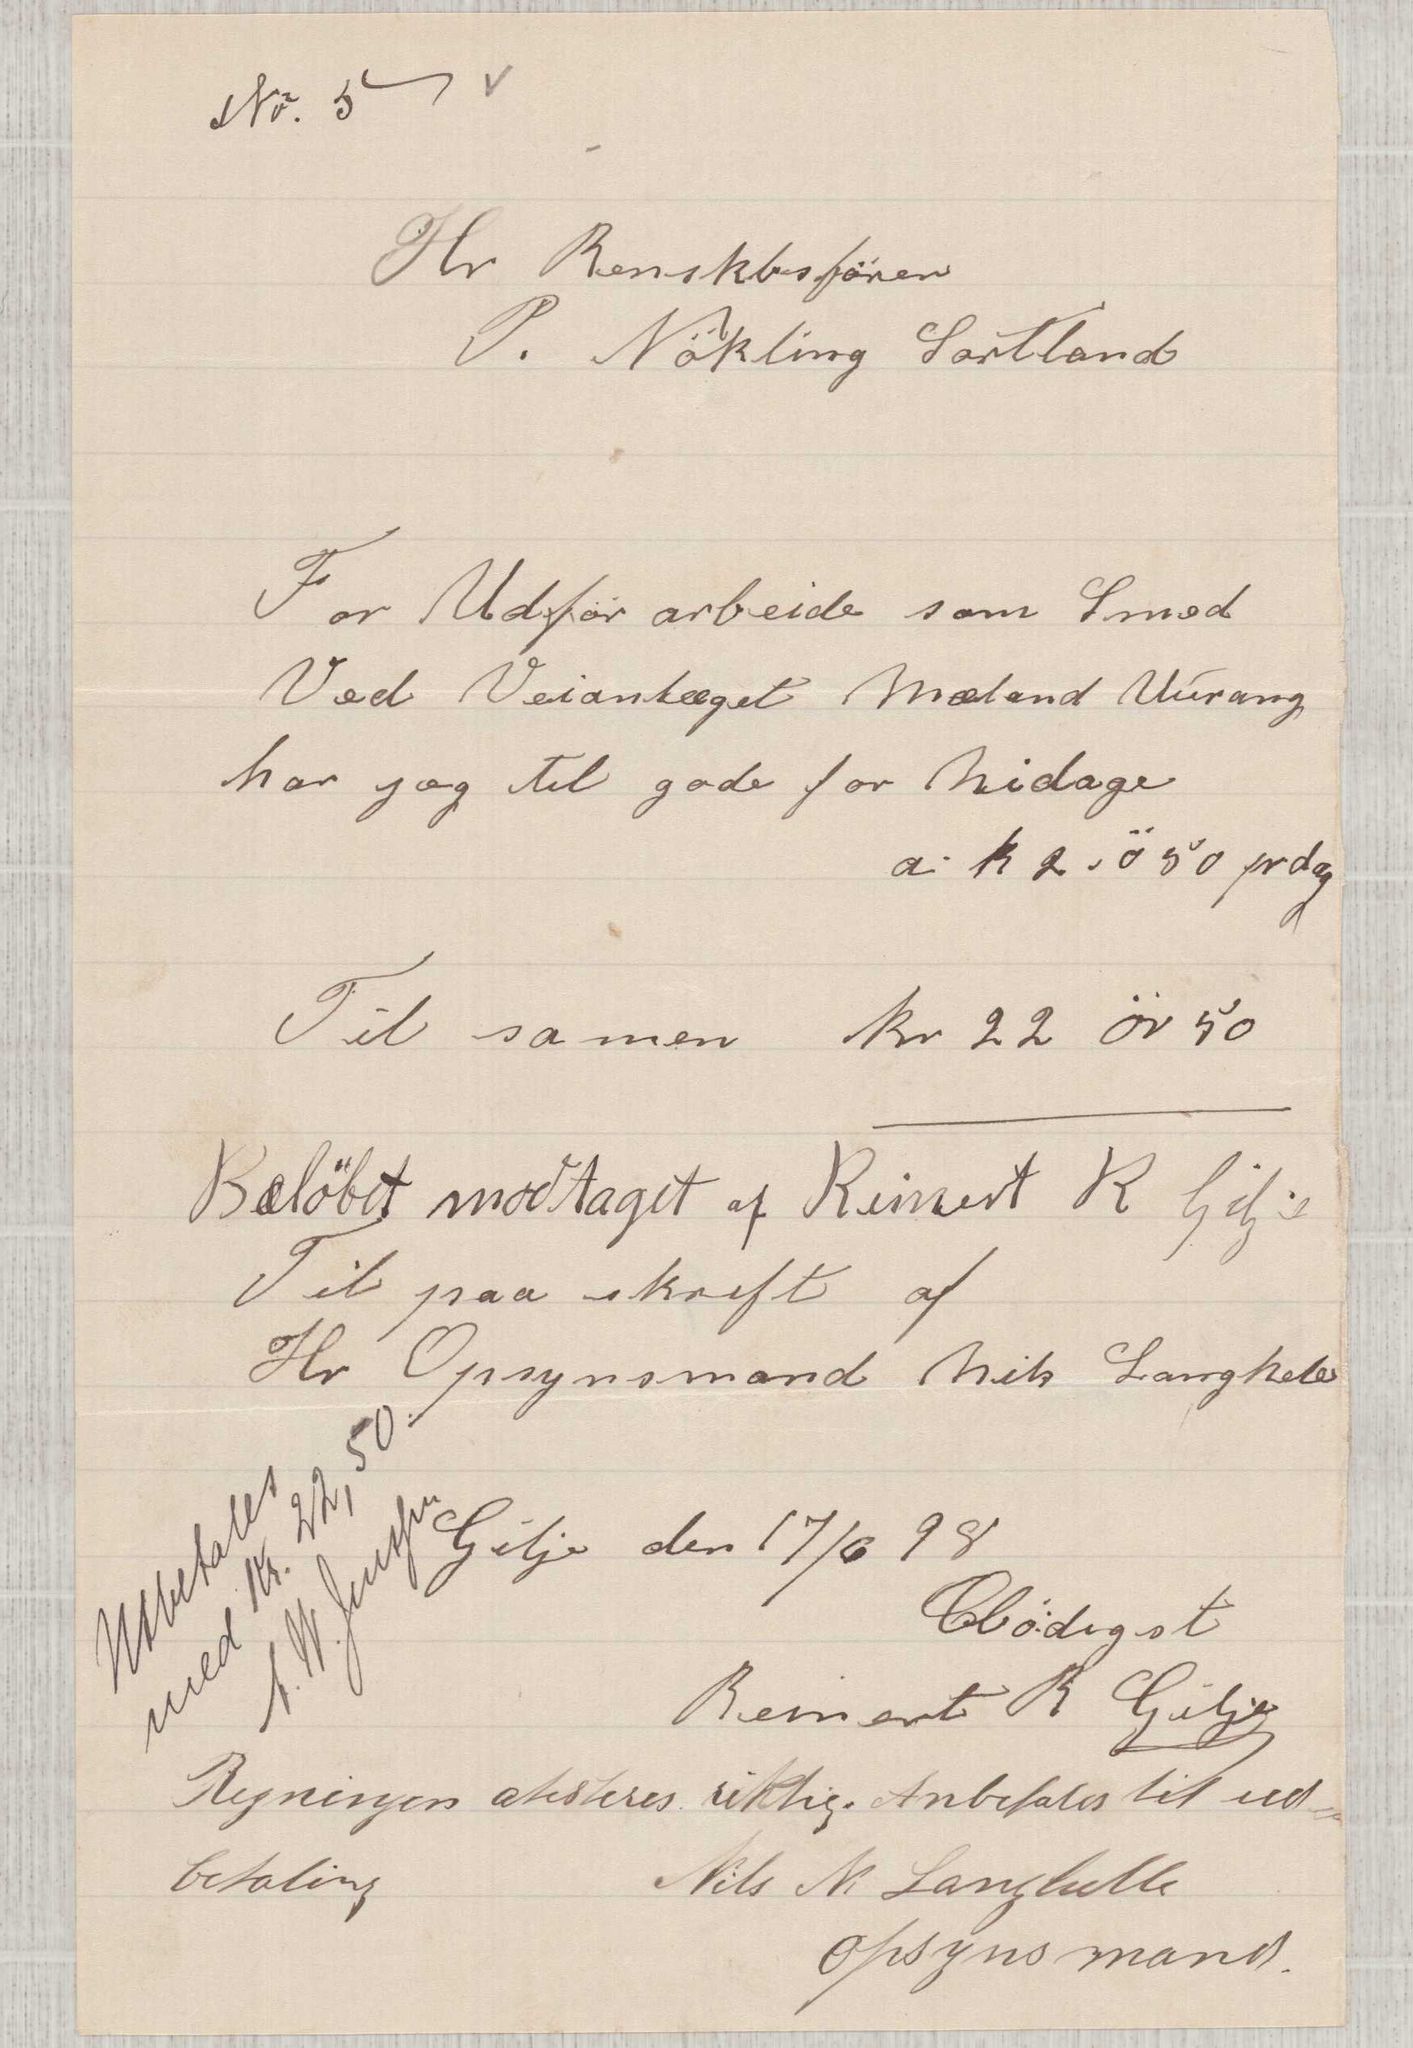 No. 5 v
Hr Renskbsfören
P. Nökling Sortland
For Udför arbeide som Smed
Ved Veianlæget Mæland Uurang
har jæg til gode for Nidage
a. k 2. ö 50 pr dag
Til samen kr 22 ör 50
Beløbet modtaget af Reinert R Gilje
Til paa skreft af
Hr Opsynsmand Nils Langhele
Gilje den 17/6 98
Ærbödigst
Reinert R Gilje
Udbetales
med Kr. 22,50.
Regningen atesteres riktig. Anbefales til ud-
betaling
Nils N Langhelle
opsynsmand.